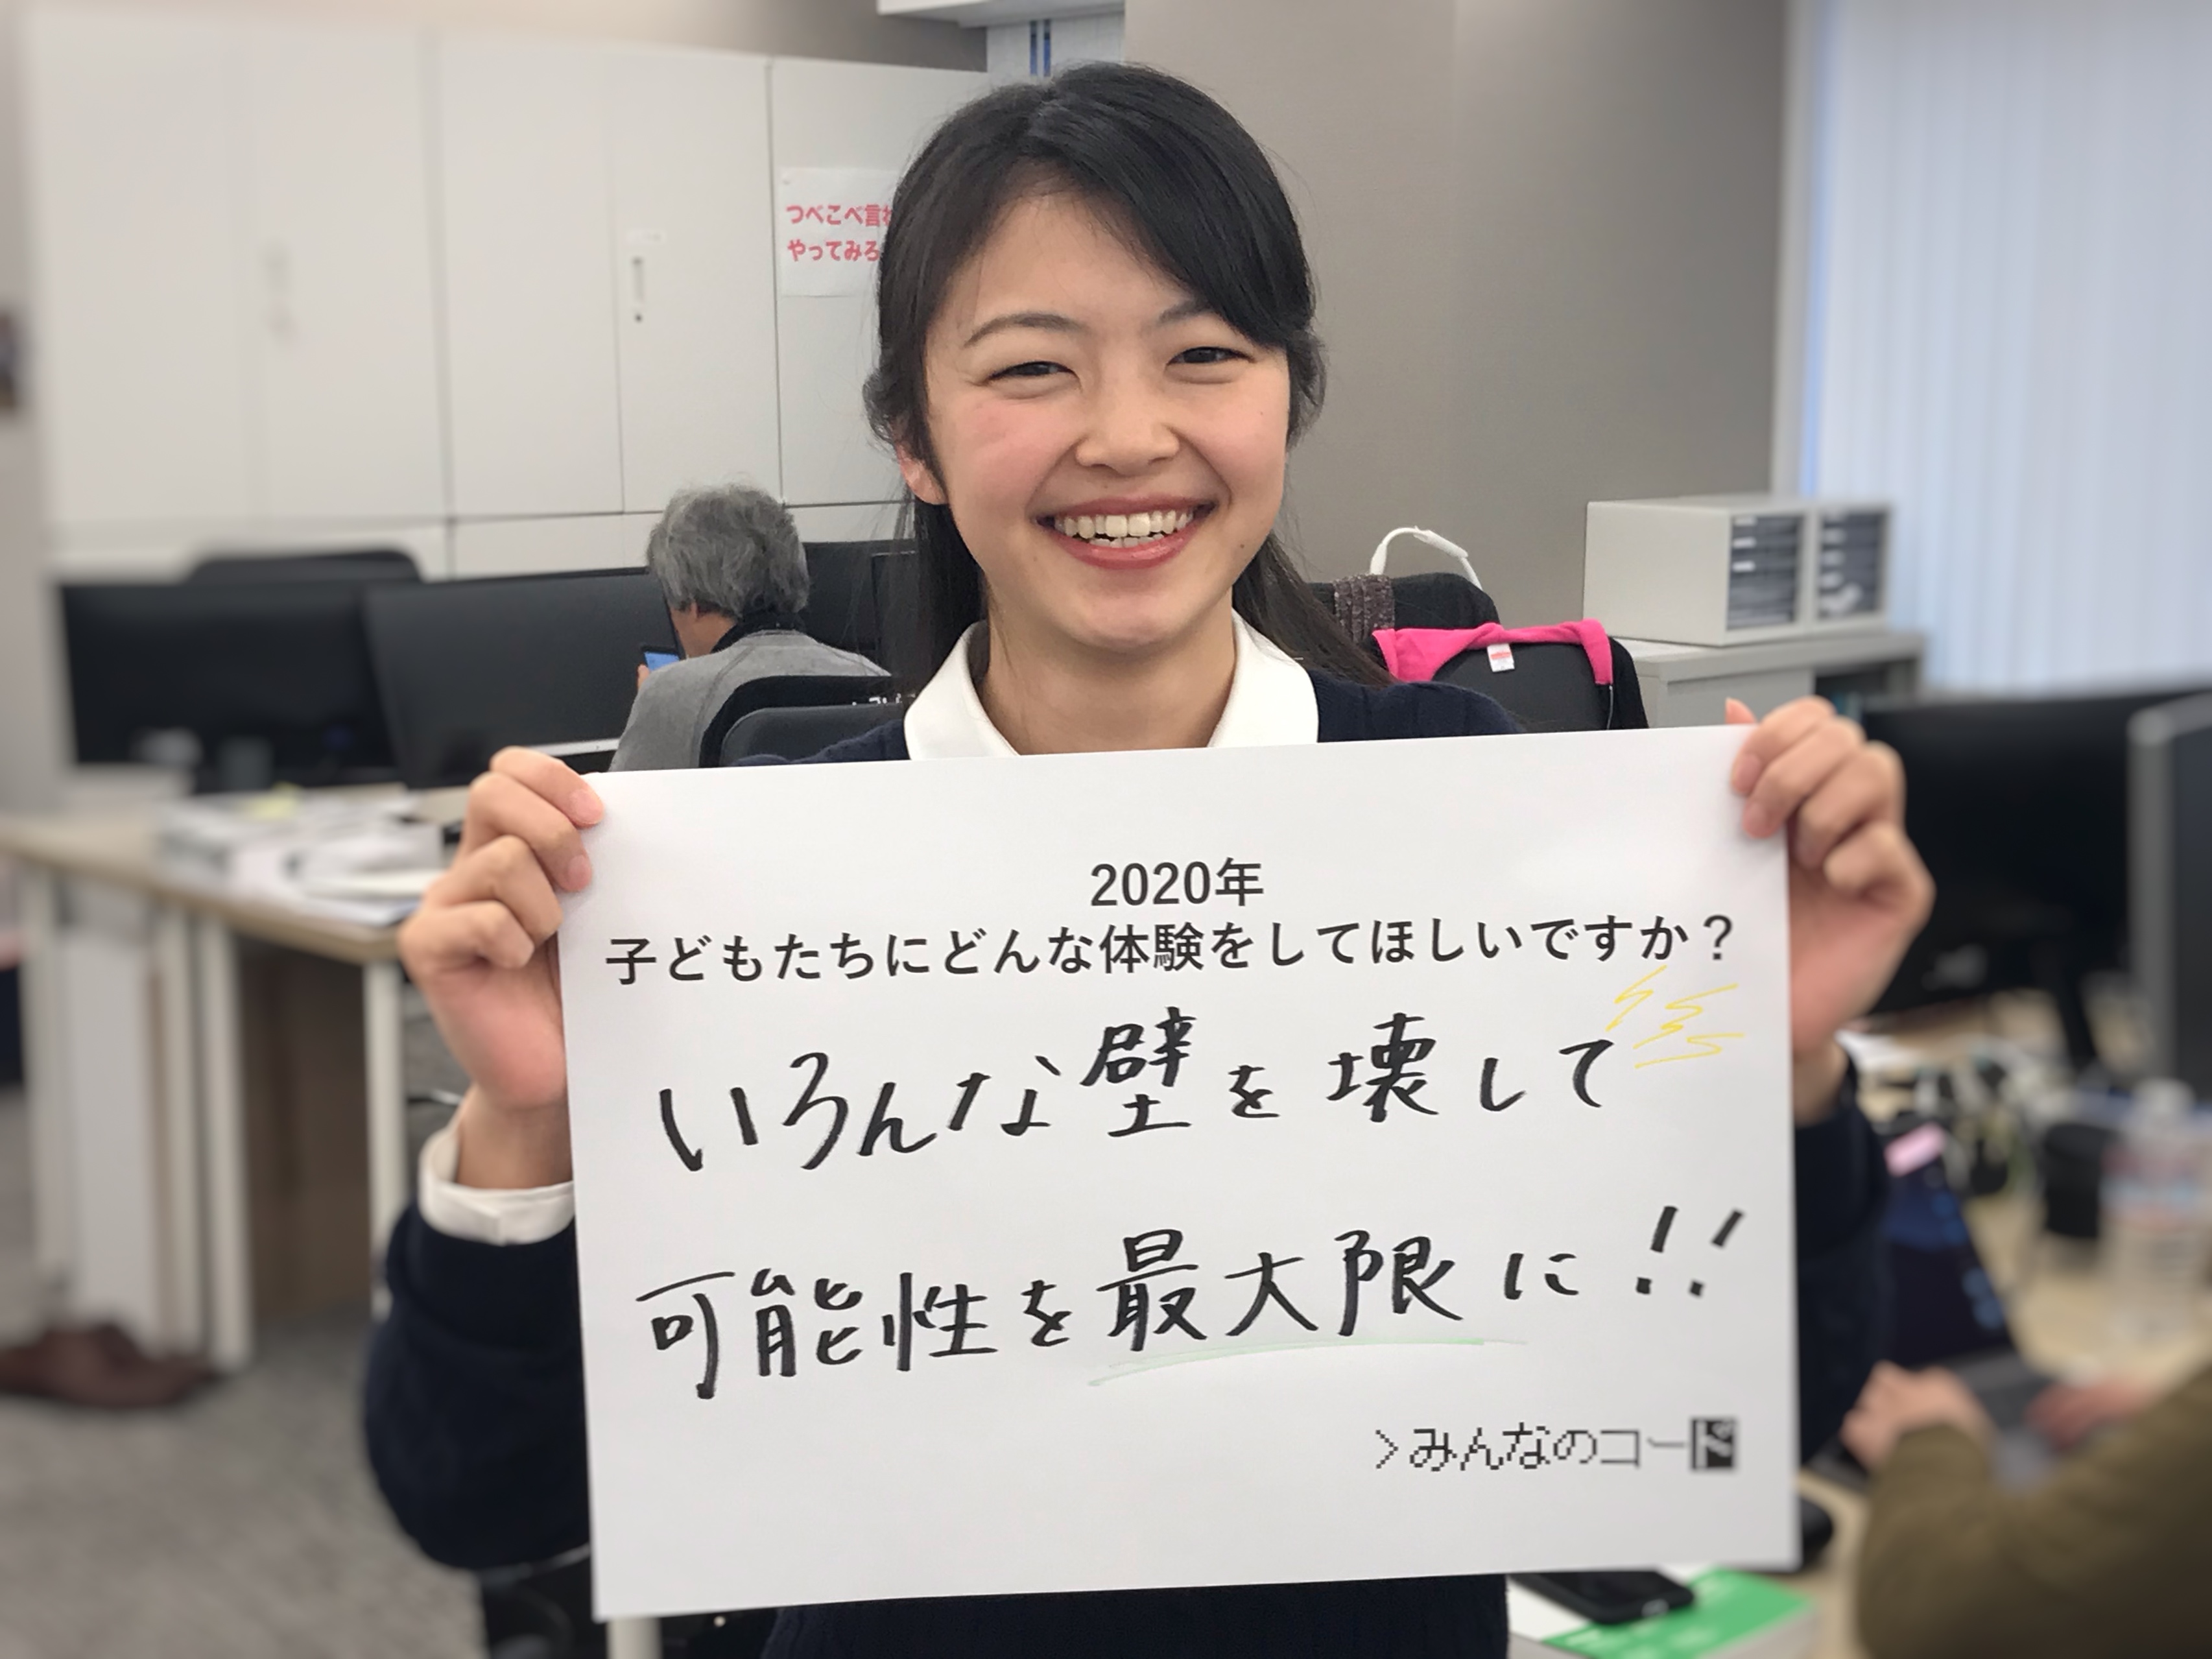 つべこべ言わ
やってみろ
2020年
子どもたちにどんな体験をしてほしいですか？
いろんな壁を壊して
可能性を最大限に!!
>みんなのコード